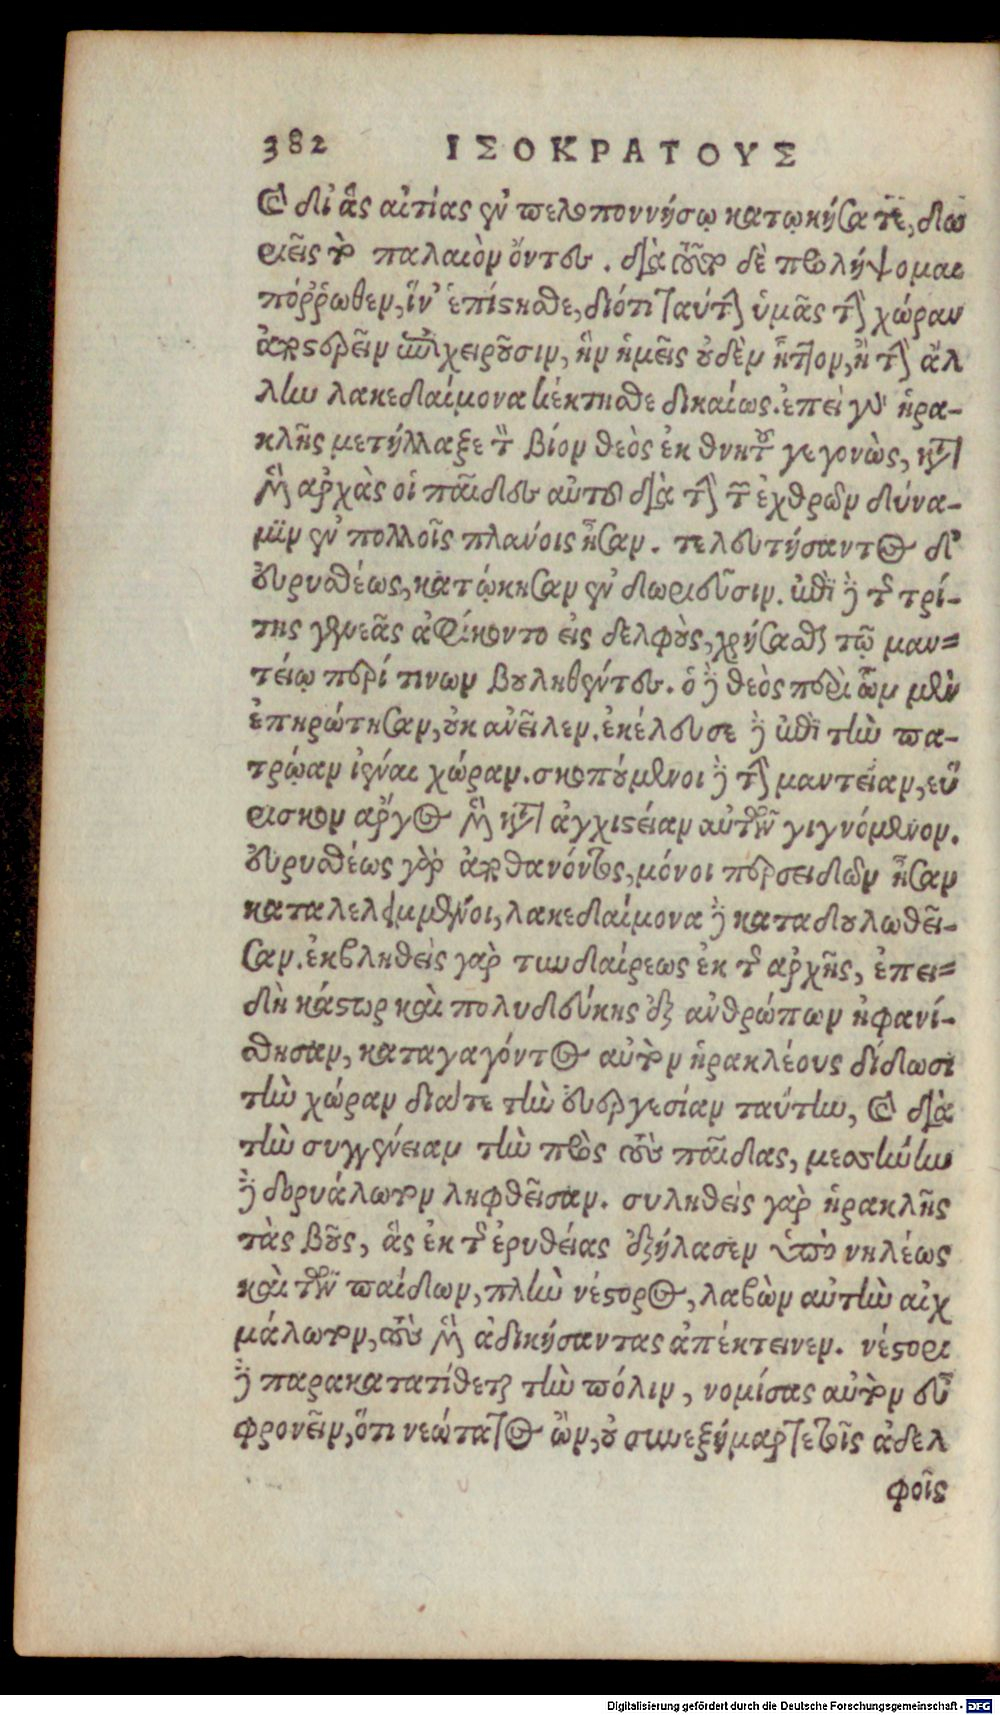 382 ΙΣΟΚΡΑΤΟΥΣ
καὶ δι᾽ ἃς αἰτίας ἐν πελοποννήσῳ κατῳκήσατε, δω
ριεῖς τὸ παλαιὸν ὄντες. διὰ τοῦτο δὲ προλήψομαι
πόῤῥωθεν, ἵν᾽ ἐπίστησθε, διότι ταύτην ὑμᾶς τὴν χώραν
ἀποστερεῖν ἐπιχειροῦσιν, ἣν ἡμεῖς οὐδὲν ἧττον, ἢ τὴν ἄλ
λην λακεδαίμονα κέκτησθε δικαίως. ἐπεὶ γὰρ ἡρα-
κλῆς μετήλλαξε τὸν βίον θεὸς ἐκ θνητοῦ γεγονὼς, κατ᾽
μὲν ἀρχὰς οἱ παῖδες αὐτοῦ διὰ τὴν τῶν ἐχθρῶν δύνα-
μιν ἐν πολλοῖς πλάνοις ἦσαν. τελευτήσαντος δ᾽
εὐρυσθέως, κατῴκησαν ἐν δωριεῦσιν. ἐπὶ δὲ τῆς τρί-
της γενεᾶς ἀφίκοντο εἰς δελφοὺς, χρήσασθαι τῷ μαν-
τείῳ περί τινων βουληθέντες. ὁ δὲ θεὸς περὶ ὧν μὲν
ἐπηρώτησαν, οὐκ ἀνεῖλεν. ἐκέλευσε δὲ ἐπὶ τὴν πα-
τρῴαν ἰέναι χώραν. σκοπούμενοι δὲ τὴν μαντείαν, εὕ
ρισκον ἄργος μὲν κατ᾽ ἀγχιστείαν αὐτῶν γιγνόμενον.
εὐρυσθέως γὰρ ἀποθανόντος, μόνοι περσειδῶν ἦσαν
καταλελειμμένοι, λακεδαίμονα δὲ καταδουλωθεῖ-
σαν. ἐκβληθεὶς γὰρ τυνδαίρεως ἐκ τῆς ἀρχῆς, ἐπει-
δὴ κάστωρ καὶ πολυδεύκης ἐξ ἀνθρώπων ἠφανί-
σθησαν, καταγαγόντος αὐτὸν ἡρακλέους δίδωσι
τὴν χώραν διά τε τὴν εὐεργεσίαν ταύτην, καὶ διὰ
τὴν συγγένειαν τὴν πρὸς τοὺς παῖδας, μεσσήνην
δὲ δορυάλωτον ληφθεῖσαν. συληθεὶς γὰρ ἡρακλῆς
τὰς βοῦς, ἃς ἐκ τῆς ἐρυθείας ἐξήλασεν ὑπὸ νηλέως
καὶ τῶν παίδων, πλὴν νέστορος, λαβὼν αὐτὴν αἰχ
μάλωτον, τοὺς μὲν ἀδικήσαντας ἀπέκτεινεν. νέστορι
δὲ παρακατατίθεται τὴν πόλιν, νομίσας αὐτὸν εὖ
φρονεῖν, ὅτι νεώτατος ὢν, οὐ συνεξήμαρτε τοῖς ἀδελ
φοῖς
Digitalisierung gefördert durch die Deutsche Forschungsgemeinschaft - DFG